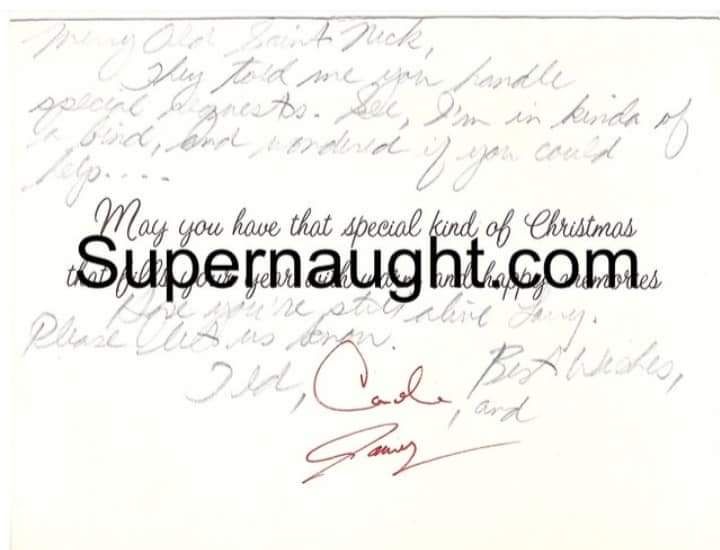 Merry Old Saint Nick,
They told me you handle
special requests. See, I'm in kinda of
a bind, and wondered if you could
help....
May you have that special kind of Christmas
Supernaught.com
that fills your year with warm and happy memories
Hope you're still alive Larry.
Please let us know.
Best Wishes,
Ted, Carole, and